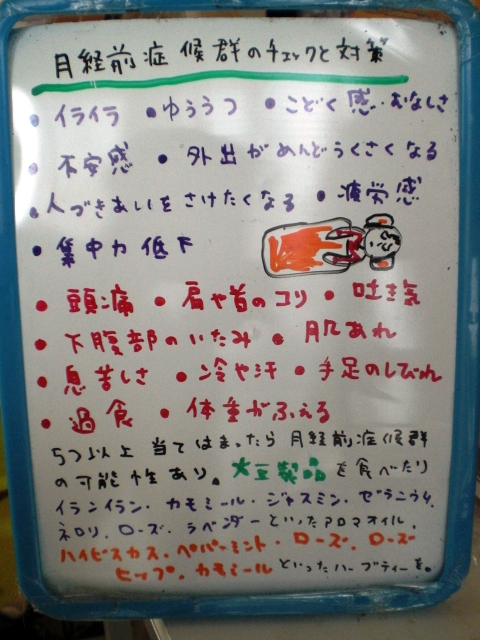 月経前症候群のチェックと対策
• イライラ • ゆううつ • こどく感・むなしさ
• 不安感 • 外出がめんどうくさくなる
• 人づきあいをさけたくなる • 疲労感
• 集中力低下
• 頭痛 • 肩や首のコリ • 吐き気
• 下腹部のいたみ • 肌あれ
• 息苦しさ • 冷や汗 • 手足のしびれ
• 過食 • 体重がふえる
5つ以上当てはまったら月経前症候群
の可能性あり。大豆製品を食べたり
イランイラン・カモミール・ジャスミン・ゼラニウム、
ネロリ、ローズ、ラベンダーといったアロマオイル、
ハイビスカス・ペパーミント・ローズ、ローズ
ヒップ、カモミールといったハーブティーを。